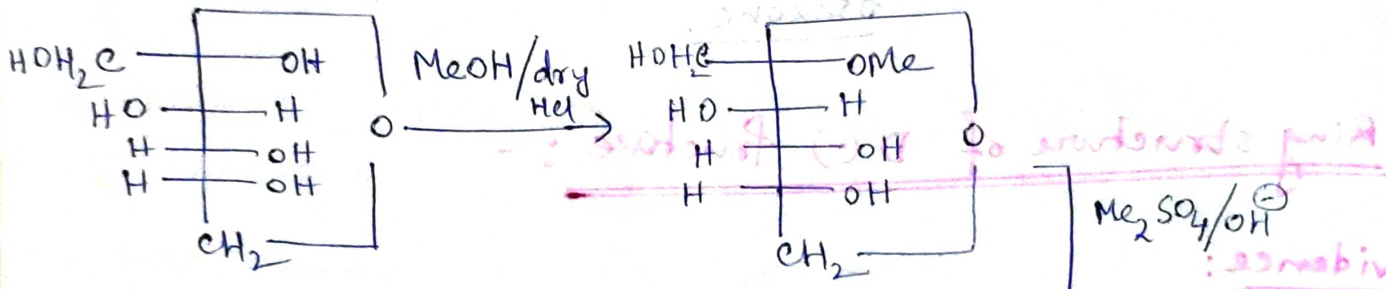 HOH₂C OH
HO H
H OH
H OH
O
CH₂
MeOH/dry
HCl
HOH₂C OMe
HO H
H OH
H OH
O
CH₂
Me₂SO₄/OH⊖